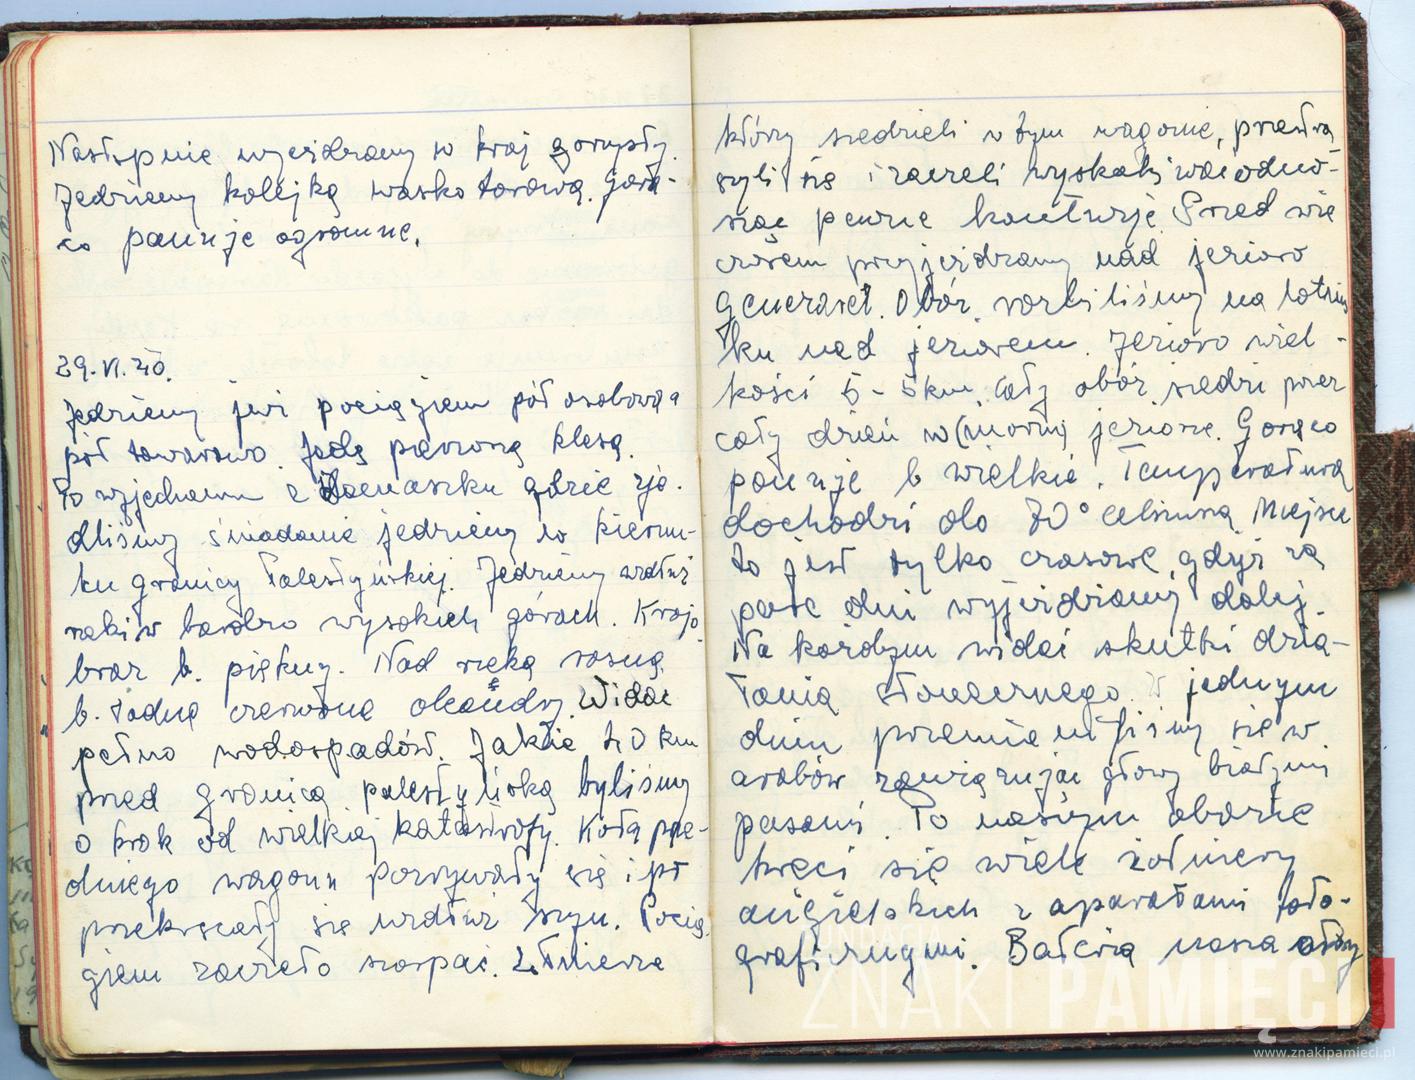 Następnie wyjeżdżamy w kraj górzysty.
Jedziemy kolejką wąsko torową. Gorą-
co panuje ogromne.
29.VI.40.
Jedziemy już pociągiem pół osobowo a
pół towarowo. Jadę pierwszą klasą.
Po wyjechaniu z Damaszku gdzie zja-
dliśmy śniadanie jedziemy w kierun-
ku granicy Palestyńskiej. Jedziemy wzdłuż
rzeki w bardzo wysokich górach. Krajo
braz b. piękny. Nad rzeką rosną
b. ładne czerwone oleandry. Widać
pełno wodospadów. Jakie 40 km
przed granicą palestyńską byliśmy
o krok od wielkiej katastrofy. Koła prze-
dniego wagonu porozrywały się i
przekręcały się wzdłuż szyn. Pocią-
giem zaczęło szarpać. Żołnierze
którzy siedzieli w tym wagonie, przestra
szyli się i zaczęli wyskakiwać odno-
sząc pewne kontuzje. Przed wie
czorem przyjeżdżamy nad jezioro
Genezaret. Obóz rozbiliśmy na lotnis
ku nad jeziorem. Jezioro wiel-
kości 5 - 5 km. Cały obóz siedzi przez
cały dzień w (morzu) jeziorze. Gorąco
panuje b wielkie. Temperatura
dochodzi do 70° Celsiusa. Miejsce
to jest tylko czasowe, gdyż za
parę dni wyjeżdżamy dalej.
Na każdym widać skutki dzia-
łania słonecznego. W jednym
dniu przemieniliśmy się w
arabów zawiązując głowy białymi
pasami. Po naszym obozie
kręci się wiele żołnierzy
angielskich z aparatami foto-
graficznymi. Bateria nasza
FUNDACJA
ZNAKI PAMIĘCI
www.znakipamieci.pl